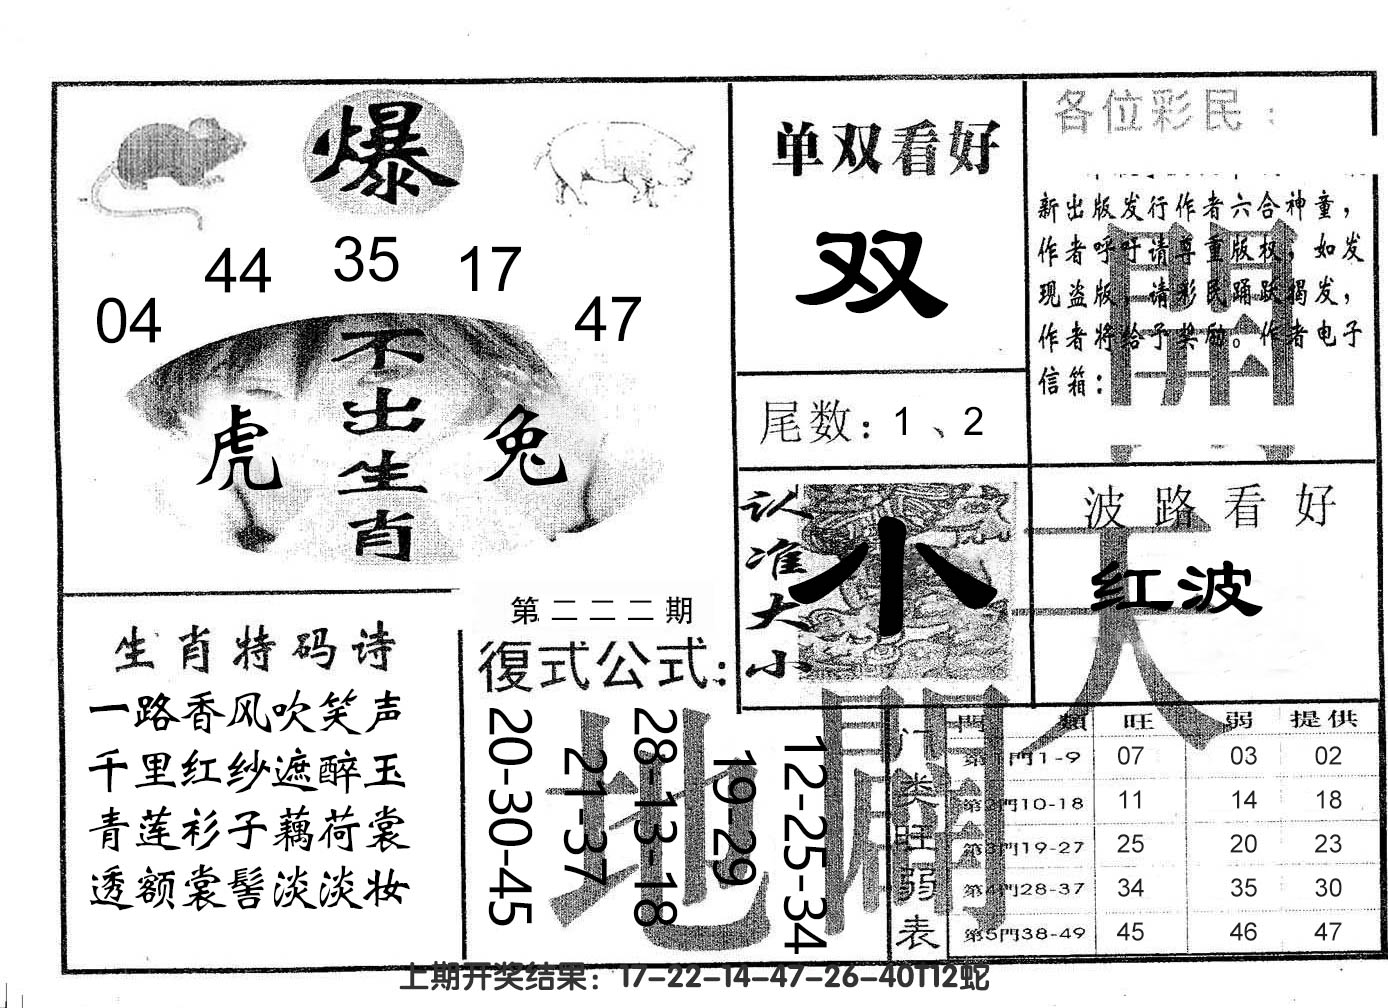 爆
44 35 17
04 47
不出生肖
虎 兔
单双看好
双
尾数：1、2
各位彩民：
新出版发行作者六合神童，
作者呼吁请尊重版权，如发
现盗版，请彩民踊跃揭发，
作者将给予奖励。作者电子
信箱：
認准大小
小
波路看好
红波
天
開
地
生肖特码诗
一路香风吹笑声
千里红纱遮醉玉
青莲衫子藕荷裳
透额裳髻淡淡妆
第二二二期
復式公式：
20-30-45
21-37
28-13-18
19-29
12-25-34
门类旺弱表
門類 旺 弱 提供
第1門1-9 07 03 02
第2門10-18 11 14 18
第3門19-27 25 20 23
第4門28-37 34 35 30
第5門38-49 45 46 47
上期开奖结果：17-22-14-47-26-40T12蛇